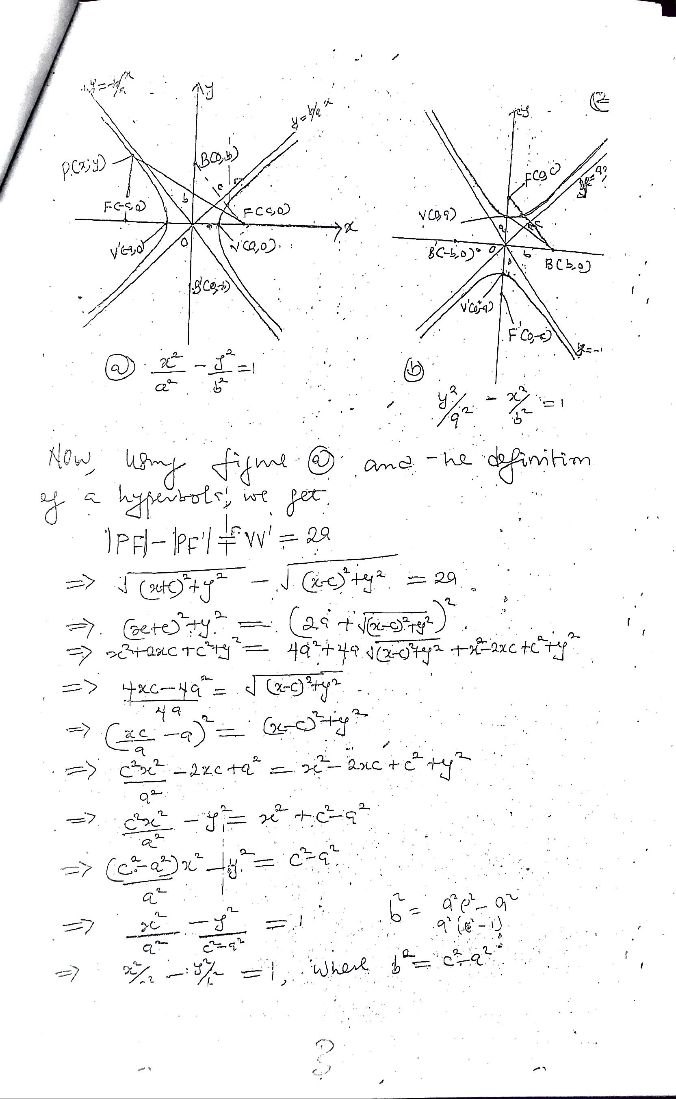 y
B(0,b)
P(x,y)
b
c
F(c,0)
x
O
V(a,0)
y
F(0,c)
V(0,a)
B(b,0)
b
O
ⓐ x²/a² - y²/b² = 1
ⓑ y²/a² - x²/b² = 1
Now, using figure ⓐ and the definition
of a hyperbola, we get
|PF| - |PF'| = VV' = 2a
=> √(x+c)²+y² - √(x-c)²+y² = 2a
=> (x+c)²+y² = (2a + √(x-c)²+y²)²
=> x²+2xc+c²+y² = 4a²+4a √(x-c)²+y² + x²-2xc+c²+y²
=> (4xc-4a²)/4a = √(x-c)²+y²
=> (xc/a - a)² = (x-c)²+y²
=> c²x²/a² - 2xc + a² = x² - 2xc + c² + y²
=> c²x²/a² - y² = x² + c² - a²
=> (c²-a²)x²/a² - y² = c²-a²
=> x²/a² - y²/(c²-a²) = 1
b² = a²e² - a²
a²(e²-1)
=> x²/a² - y²/b² = 1, where b² = c²-a²